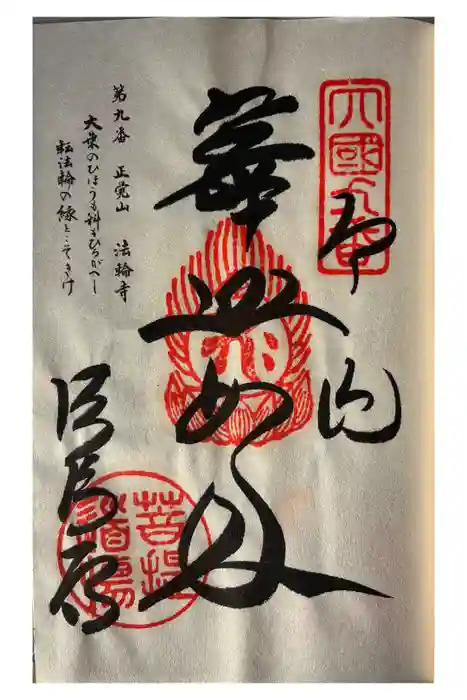 四國九番
奉納
迦如来
第九番　正覚山　法輪寺
大乗のひほうも科もひるがへし
転法輪の縁とこそきけ
菩提
道場